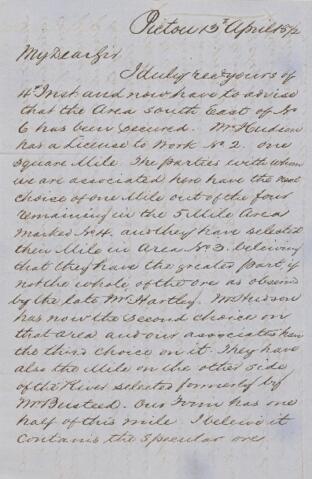 Pictou 13th April 1872
My Dear Sir
I duly recd yours of
4th Inst and now have to advise
that the Area South East of No
6 has been secured. Mr Hudson
has a License to Work No 2. One
Square Mile. The parties with whom
we are associated here have the next
choice of one Mile out of the four
remaining in the 5 Mile Area
Marked No 4. and they have selected
their Mile in Area No 3. beliving
that they have the greater part if
not the whole of the ore as observed
by the late Mr Hartley. Mr Hudson
has now the second choice on
that area and our associates have
the third choice on it. They have
also the Mile on the other side
of the River selected formerly by
Mr Busteed. Our Firm has one
half of this mile. I beleive it
contains the Specular ore